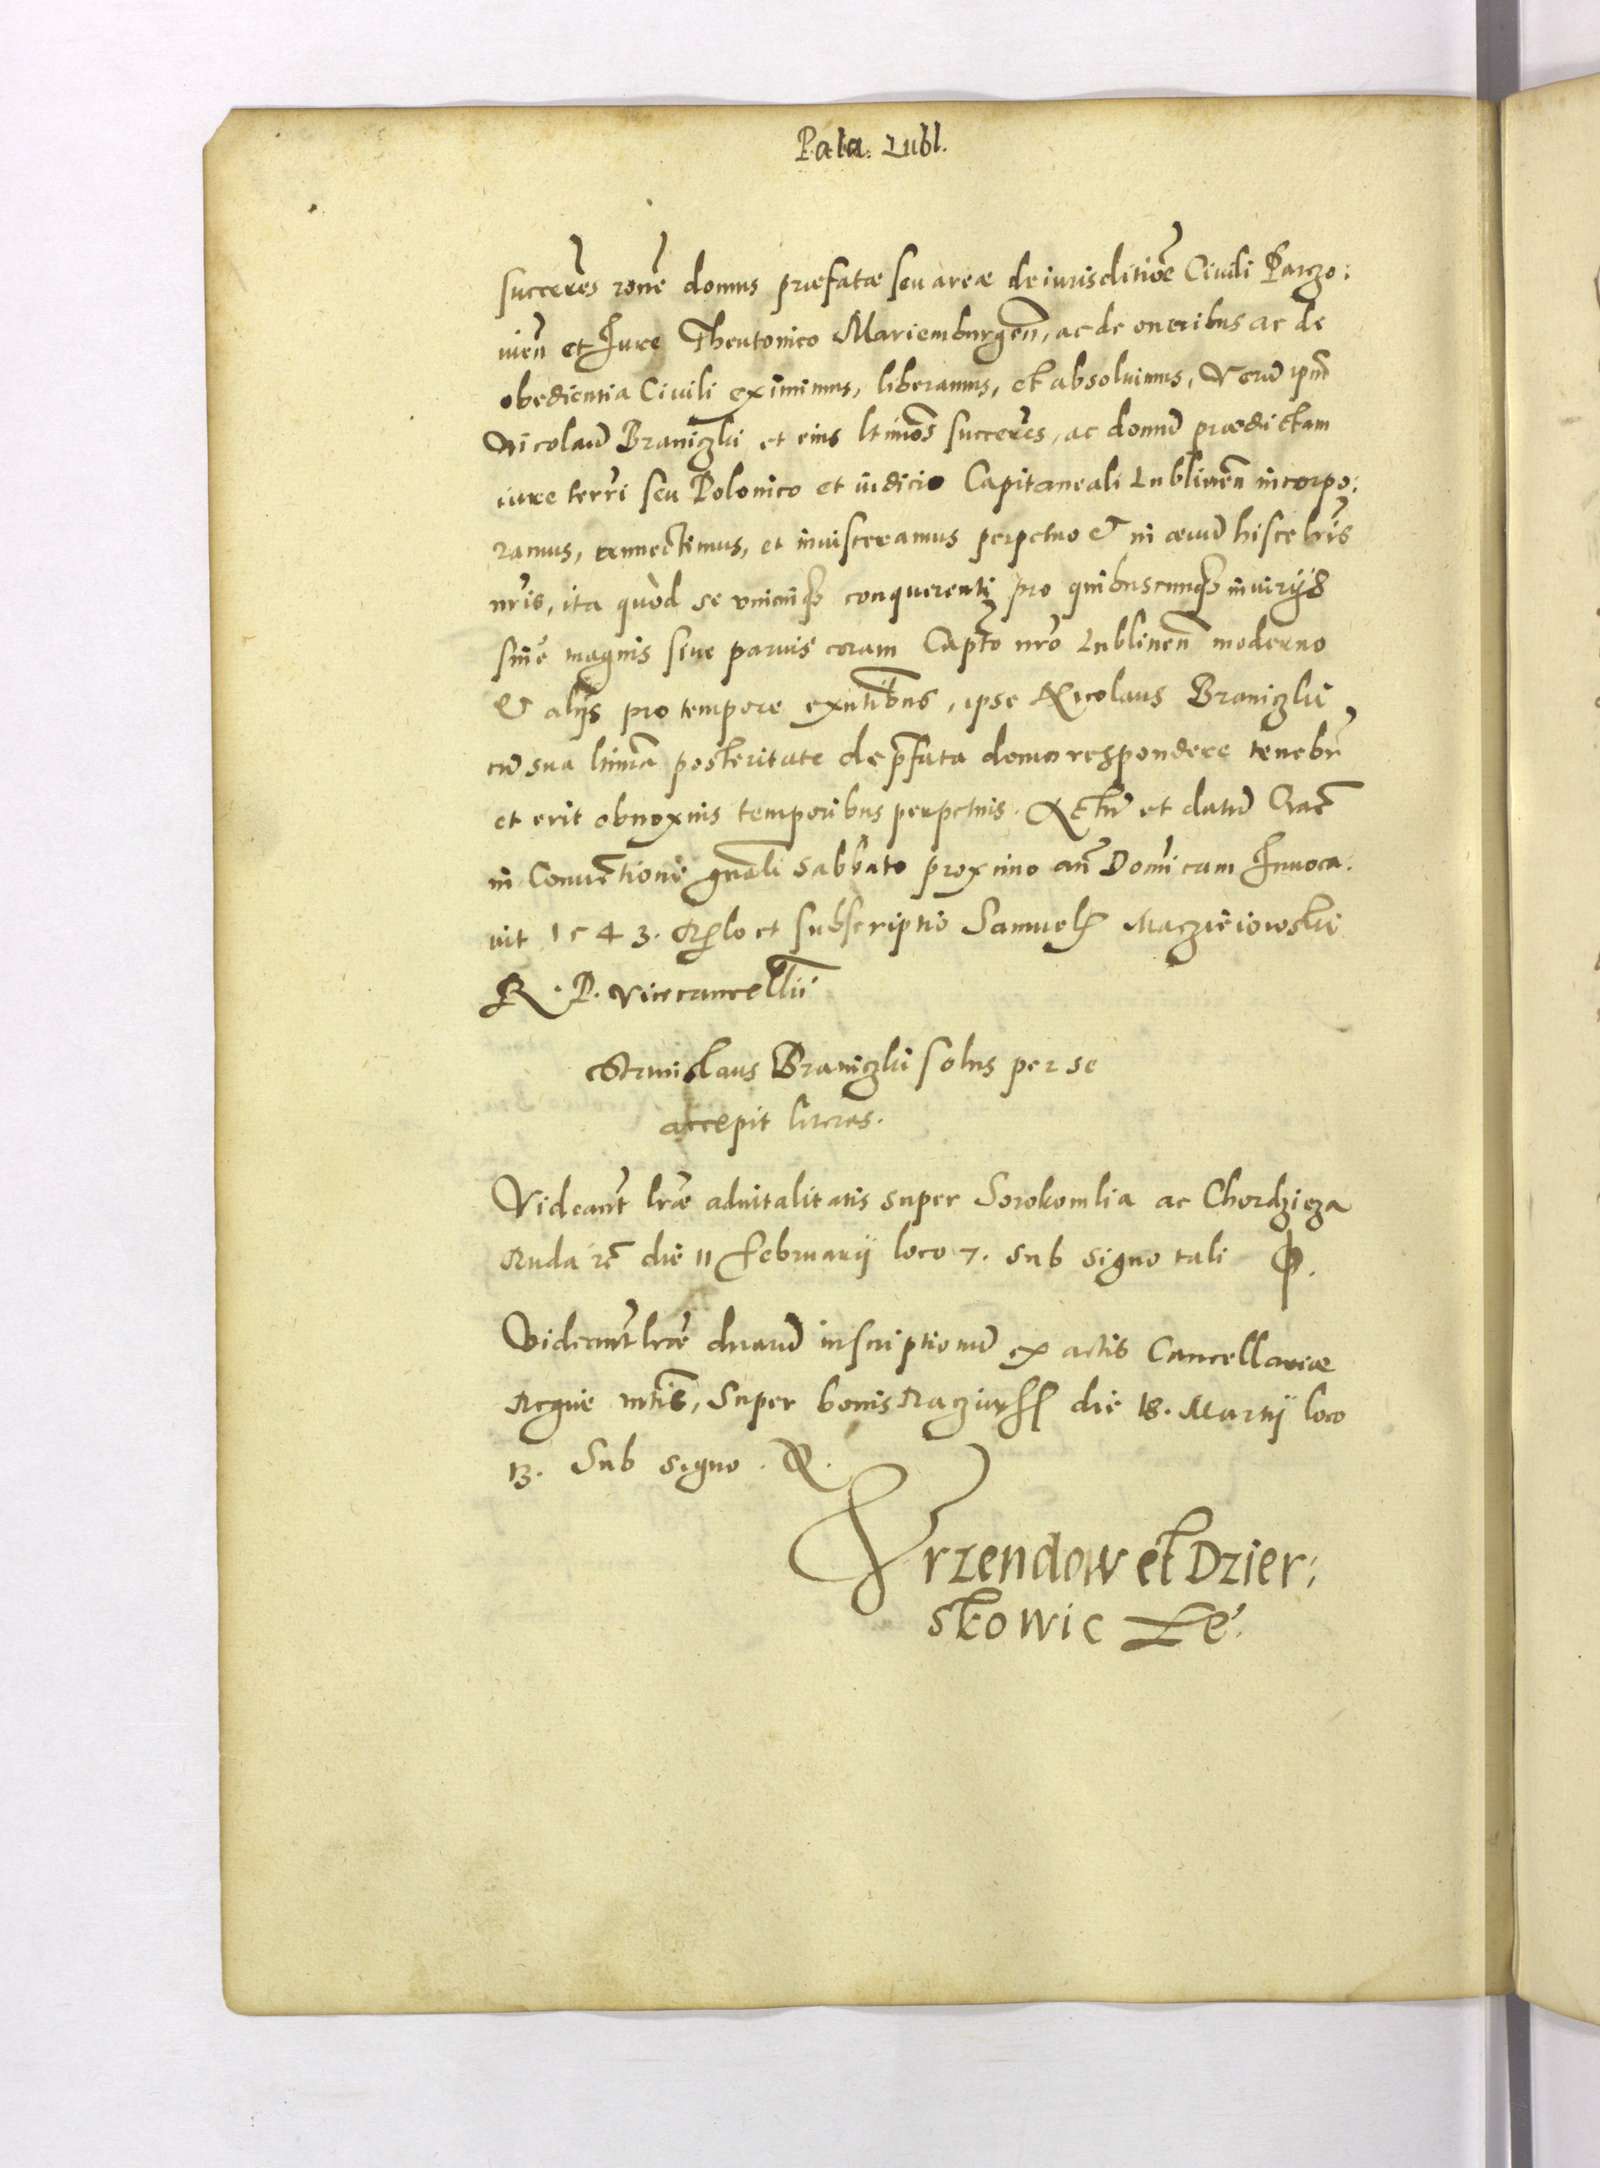 Pala. Lubl.
succeres rone domus præfatæ seu areæ de iurisditioe Ciuili Parczo:
uien et Iure Theutonico Mariemburgen, ac de oneribus ac de
obedientia Ciuili eximimus, liberamus, et absoluimus, Veru ipm
Nicolau Braniczki et eius ltimos succeres, ac domu prædictam
iure terri seu Polonico et iudicio Capitaneali Lublinen incorpo:
ramus, annectimus, et inuisceramus perpetuo & in æuu hisce lris
nris, ita quòd se vnicuiq conquerenti pro quibuscunq iniurijs
siue magnis siue paruis coram Capto nro Lublinen moderno
& alijs pro tempore exntibus, ipse Nicolaus Braniczki
cu sua ltima posteritate de pfata domo respondere tenebr
et erit obnoxius temporibus perpetuis. Actu et datu Crac
in Conuetione gnali sabbato proximo an Domicam Inuoca.
uit 1543. Rlo et subscriptio Samuel Maczieiowski
R. P. Vicecancellii
Stanislaus Braniczki solus per se
accepit literas.
Videant lræ aduitalitatis super Sorokomlia ac Chordzieza
Ruda rc die 11 february loco 7. sub signo tali Φ.
Videant lræ duaru inscriptionu ex actis Cancellariæ
Regiæ mtis, Super bonis die 18. Martij loco
13. Sub signo.
Vrzendow et Dzier:
skowic Le.